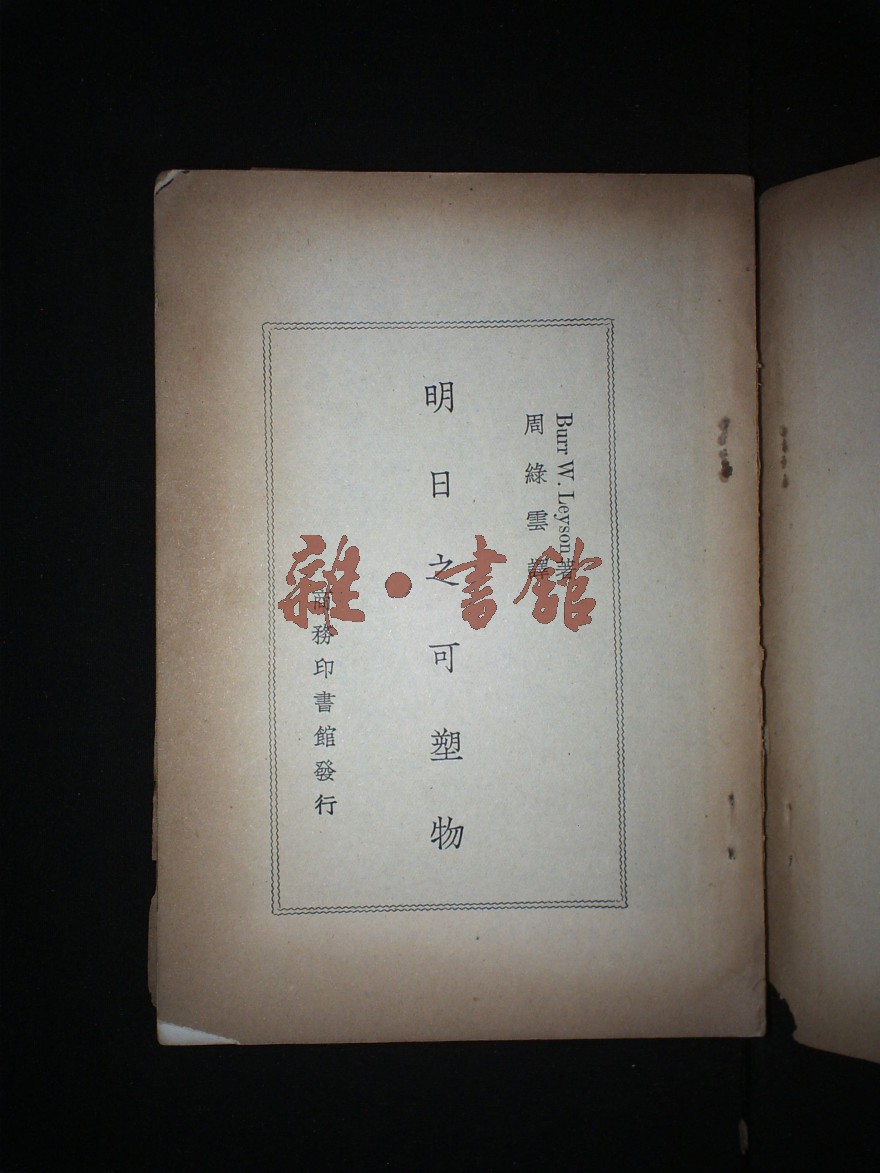 Burr W. Leyson 著
周綠雲譯
明日之可塑物
商務印書館發行
雜·書館